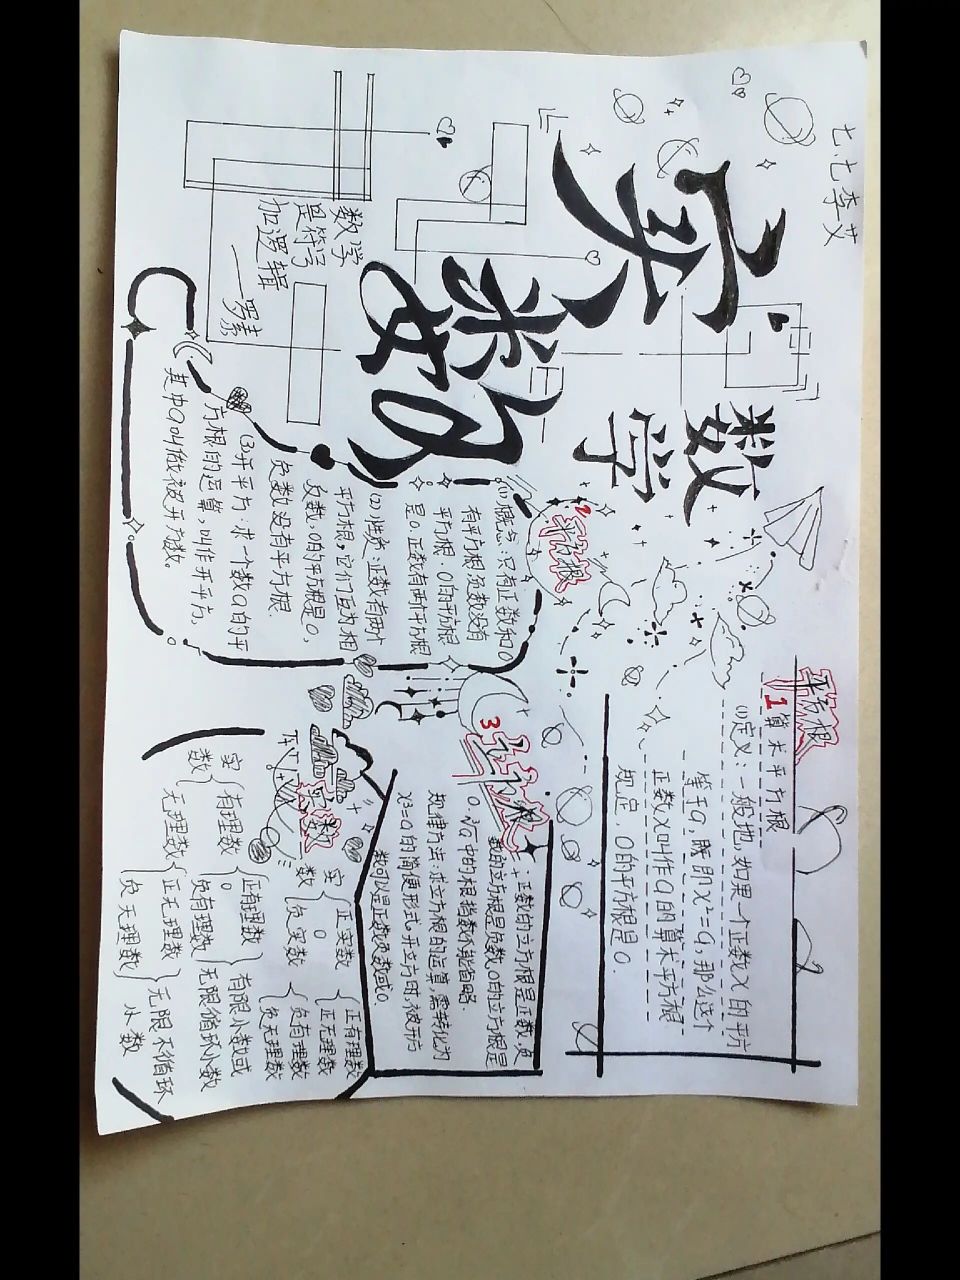 七.七李艾
实数
数学
数学
是符号
加逻辑
——罗素
平方根
1算术平方根
(1)定义:一般地,如果一个正数x的平方
等于a,既即x²=a,那么这个
正数x叫作a的算术平方根
规定:0的平方根是0.
2
平方根
(1)概念:只有正数和0
有平方根.负数没有
平方根.0的平方根
是0.正数有两个平方根
正数有两个
平方根,它们互为相
反数.0的平方根是0,
负数没有平方根.
(3)开平方:求一个数a的平
方根的运算,叫作开平方,
其中a叫做被开方数.
3立方根
:正数的立方根是正数,负
数的立方根是负数,0的立方根是
0.∛a中的根指数不能省略.
规律方法:求立方根的运算需转化为
x³=a的简便形式。开立方时,被开方
数可以是正数负数或0.
实数
实数{正实数 0 负实数
{正有理数 正无理数
{负有理数 负无理数
实数{有理数{正有理数 0 负有理数}有限小数或无限循环小数
无理数{正无理数 负无理数}无限不循环小数